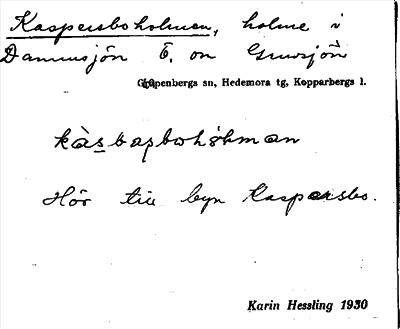 Kaspersboholmen, holme i
Dammsjön Ö. om Grusjön
Garpenbergs sn, Hedemora tg, Kopparbergs l.
Hör till byn Kaspersbo.
Karin Hessling 1930